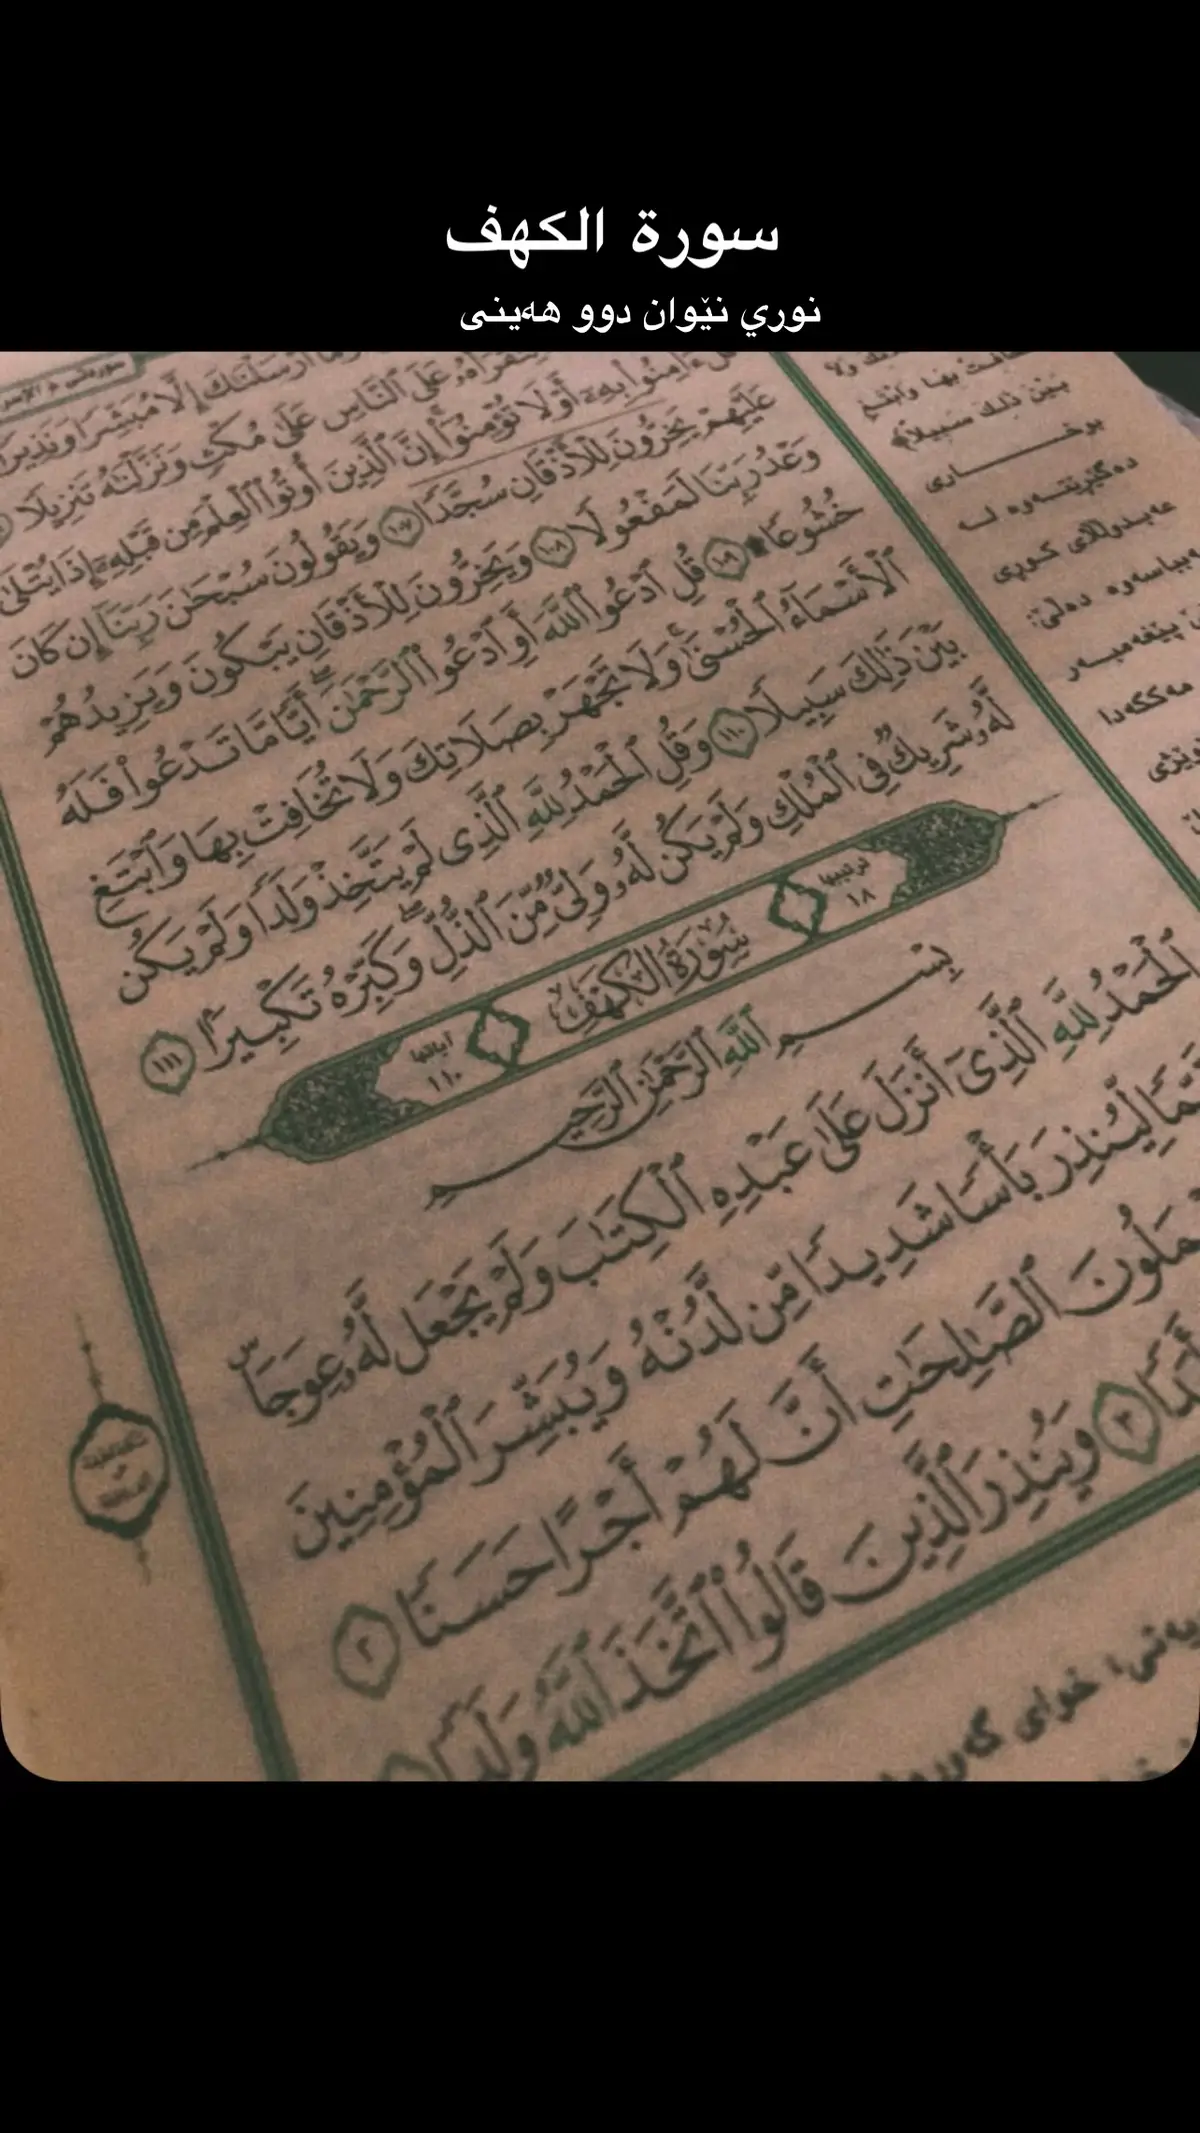 سورة الكهف
نوري نێوان دوو هەینی
أَرْسَلْنَٰكَ إِلَّا مُبَشِّرًا وَنَذِيرًا
عَلَى ٱلنَّاسِ عَلَىٰ مُكْثٍ وَنَزَّلْنَٰهُ تَنزِيلًا
ءَامِنُوا۟ بِهِۦٓ أَوْ لَا تُؤْمِنُوٓا۟ ۚ إِنَّ ٱلَّذِينَ أُوتُوا۟ ٱلْعِلْمَ مِن قَبْلِهِۦٓ إِذَا يُتْلَىٰ
عَلَيْهِمْ يَخِرُّونَ لِلْأَذْقَانِ سُجَّدًا ١٠٧ وَيَقُولُونَ سُبْحَٰنَ رَبِّنَآ إِن كَانَ
وَعْدُ رَبِّنَا لَمَفْعُولًا ١٠٨ وَيَخِرُّونَ لِلْأَذْقَانِ يَبْكُونَ وَيَزِيدُهُمْ
خُشُوعًا ١٠٩ قُلِ ٱدْعُوا۟ ٱللَّهَ أَوِ ٱدْعُوا۟ ٱلرَّحْمَٰنَ ۖ أَيًّا مَّا تَدْعُوا۟ فَلَهُ
ٱلْأَسْمَآءُ ٱلْحُسْنَىٰ ۚ وَلَا تَجْهَرْ بِصَلَاتِكَ وَلَا تُخَافِتْ بِهَا وَٱبْتَغِ
بَيْنَ ذَٰلِكَ سَبِيلًا ١١٠ وَقُلِ ٱلْحَمْدُ لِلَّهِ ٱلَّذِى لَمْ يَتَّخِذْ وَلَدًا وَلَمْ يَكُن
لَّهُۥ شَرِيكٌ فِى ٱلْمُلْكِ وَلَمْ يَكُن لَّهُۥ وَلِىٌّ مِّنَ ٱلذُّلِّ ۖ وَكَبِّرْهُ تَكْبِيرًۢا ١١١
ترتيبها ١٨ سُورَةُ الكَهْفِ آياتها ١١٠
بِسْمِ ٱللَّهِ ٱلرَّحْمَٰنِ ٱلرَّحِيمِ
ٱلْحَمْدُ لِلَّهِ ٱلَّذِىٓ أَنزَلَ عَلَىٰ عَبْدِهِ ٱلْكِتَٰبَ وَلَمْ يَجْعَل لَّهُۥ عِوَجَا ۜ
لِّيُنذِرَ بَأْسًا شَدِيدًا مِّن لَّدُنْهُ وَيُبَشِّرَ ٱلْمُؤْمِنِينَ
ٱلصَّٰلِحَٰتِ أَنَّ لَهُمْ أَجْرًا حَسَنًا ٢
٣ وَيُنذِرَ ٱلَّذِينَ قَالُوا۟ ٱتَّخَذَ ٱللَّهُ وَلَدًا
بها وابتغ
بين ذلك سبيلا﴾
برخاری
دەگێڕێتەوە لە
عەبدوللای کوڕی
دەلێ:
پێغەمبەر
مەککەدا
خوای